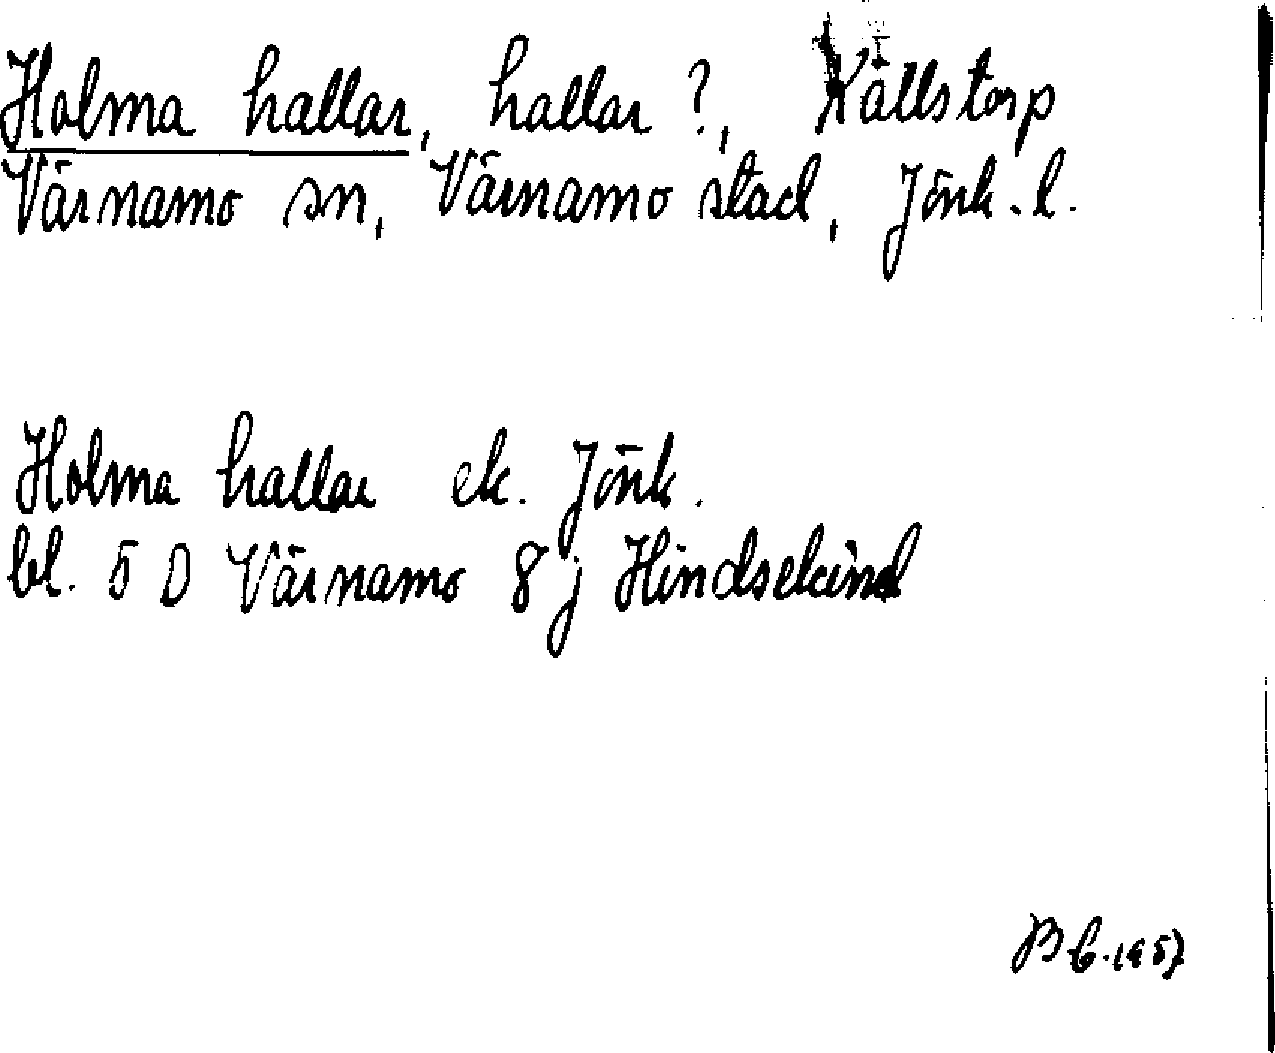 Holma hallar, hallar ?, Källstorp
Värnamo sn, Värnamo stad, Jönk. l.
Holma hallar ek. Jönk.
bl. 5 D Värnamo 8 j Hindsekind
1957